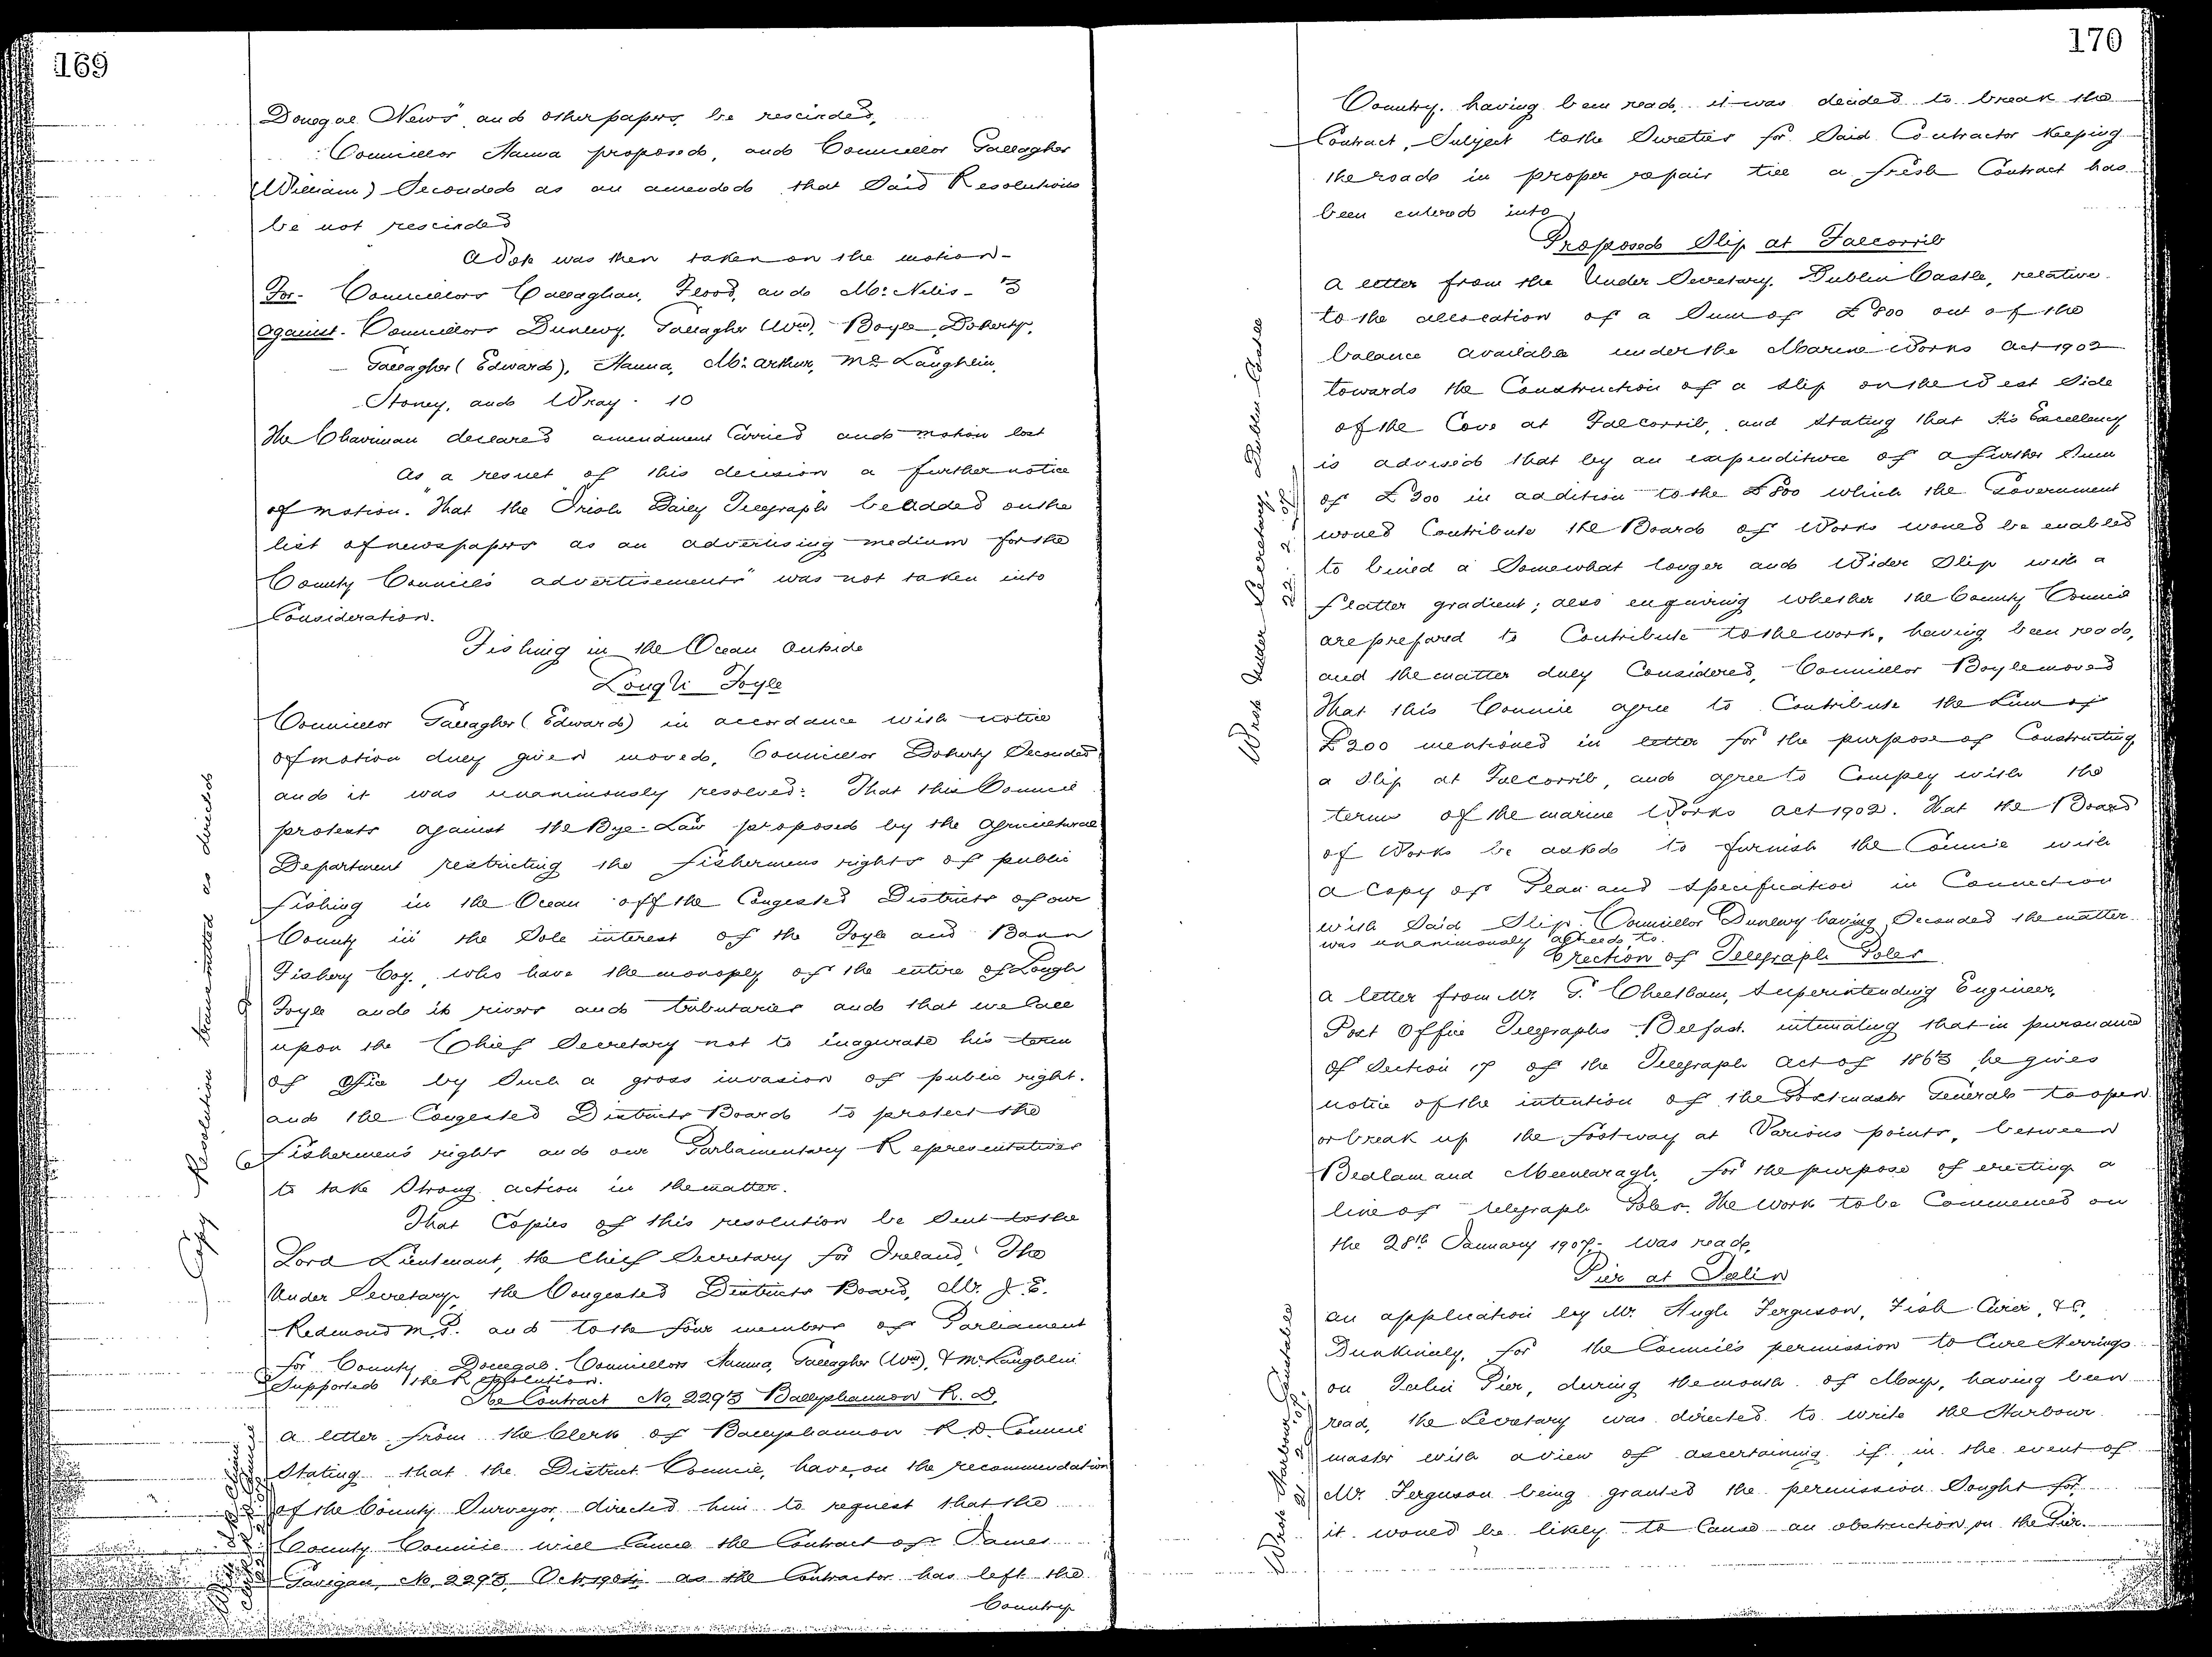 169
Donegal News" and other papers, be rescinded,
Councillor Hanna proposed, and Councillor Gallagher
(William) Seconded as an amended that Said Resolutions
be not rescinded
A Vote was then taken on the motion-
For- Councillors Callaghan, Flood, and McNelis- 3
Against- Councillors Dunlevy, Gallagher (Wm), Boyle, Doherty,
Gallagher (Edward), Hanna, McArthur, McLaughlin,
Stoney, and Wray. 10
The Chairman declared amendment Carried and motion lost
As a result of this decision a further notice
of motion. "That the Irish Daily Telegraph be added on the
list of newspapers as an advertising medium for the
County Council's advertisements" was not taken into
Consideration.
Fishing in the Ocean outside
Lough Foyle
Councillor Gallagher (Edward) in accordance with notice
of motion duly given moved, Councillor Doherty Seconded
and it was unanimously resolved: That this Council
protests against the Bye-Law proposed by the Agricultural
Department restricting the fishermens rights of public
fishing in the Ocean off the Congested Districts of our
County in the Sole interest of the Foyle and Bann
Fishery Coy., who have the monoply of the entire of Lough
Foyle and its rivers and tributaries and that we Call
upon the Chief Secretary not to inagurate his term
of Office by Such a gross invasion of public right.
and the Congested Districts Board to protect the
fishermen's rights and our Parliamentary Representatives
to take Strong action in the matter.
That Copies of this resolution be Sent to the
Lord Lieutenant, the Chief Secretary for Ireland, The
Under Secretary, the Congested Districts Board, Mr. J. E.
Redmond M.P. and to the four members of Parliament
for County Donegal. Councillors Hanna, Gallagher (Wm), & McLaughlin
Supported the Resolution.
Re Contract No. 2293 Ballyshannon R. D.
A letter from the Clerk of Ballyshannon R.D. Council
Stating that the District Council, have, on the recommendation
of the County Surveyor, directed him to request that the
County Council will Cancel the Contract of James
Gavigan, No. 2293, Oct. 1904 as the Contractor has left the
Country
Copy Resolution transmitted as directed
170
Country. having been read, it was decided to break the
Contract, Subject to the Sureties for Said Contractor Keeping
the road in proper repair till a fresh Contract has
been entered into,
Proposed Slip at Falcorrib
A letter from the Under Secretary, Dublin Castle, relative
to the allocation of a Sum of £800 out of the
balance available under the Marine Works Act 1902
towards the Construction of a slip on the West Side
of the Cove at Falcorrib, and Stating that His Excellency
is advised that by an expenditure of a further Sum
of £200 in addition to the £800 which the Government
would Contribute the Board of Works would be enabled
to build a Somewhat longer and Wider Slip with a
flatter gradient; also enquiring whether the County Council
are prepared to Contribute to the work, having been read,
and the matter duly Considered, Councillor Boyle moved
That this Council agree to Contribute the Sum of
£200 mentioned in letter for the purpose of Constructing
a Slip at Falcorrib, and agree to Comply with the
terms of the marine Works Act 1902. That the Board
of Works be asked to furnish the Council with
a Copy of Plan and Specification in Connection
with Said Slip. Councillor Dunlevy having Seconded the matter
was unanimously agreed to.
Erection of Telegraph Poles
A letter from Mr. T. Cheetham, Superintending Engineer,
Post Office Telegraphs Belfast. intimating that in pursuance
of Section 17 of the Telegraph Act of 1863 he gives
notice of the intention of the Postmaster General to open
or break up the footway at Various points, between
Bedlam and Meenlaragh, for the purpose of erecting a
line of telegraph Poles. The Work to be Commenced on
the 28th January 1907,- Was read,
Pier at Inlin
An application by Mr. Hugh Ferguson, Fish Curer, &c,
Dunkinely, for the Council's permission to Cure Herrings
on Inlin Pier, during the month of May, having been
read, the Secretary was directed to write the Harbour
master with a view of ascertaining if in the event of
Mr. Ferguson being granted the permission Sought for
it would be likely to Cause an obstruction on the Pier.
Wrote Under Secretary, Dublin Castle
22.2.07
Wrote Harbour Constable
21.2.07